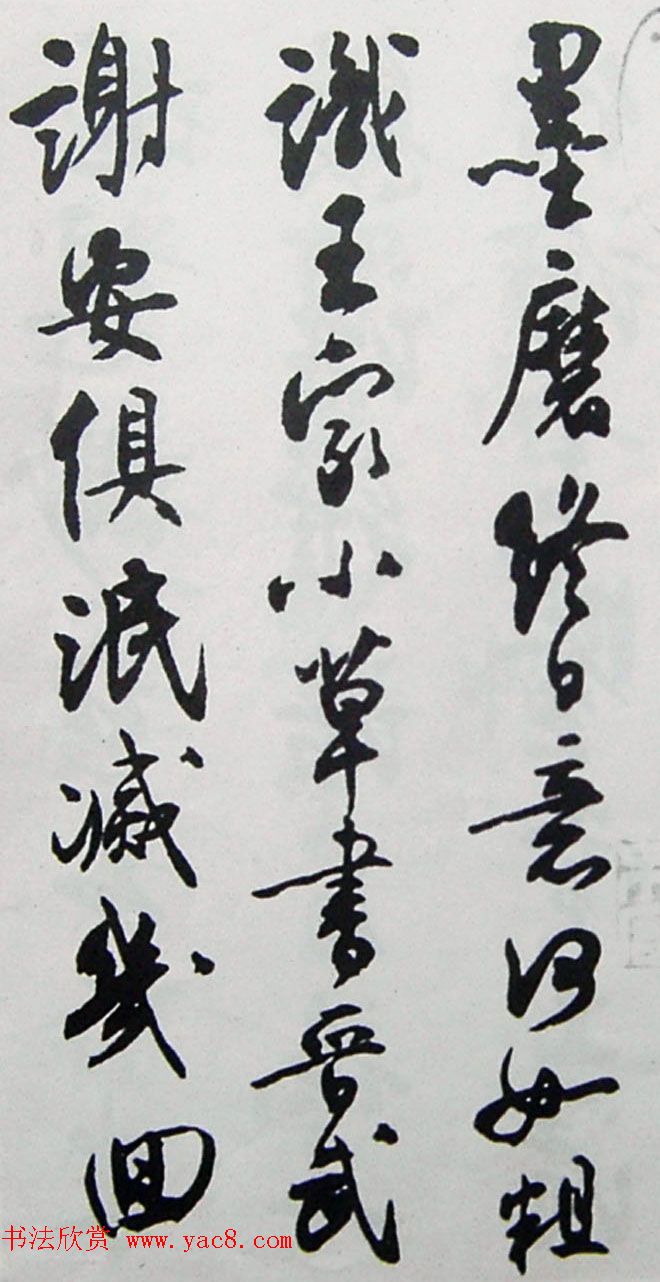 墨磨终日意何如粗
識王家小草書晋武
謝安俱泯滅幾回
书法欣赏 www.yac8.com